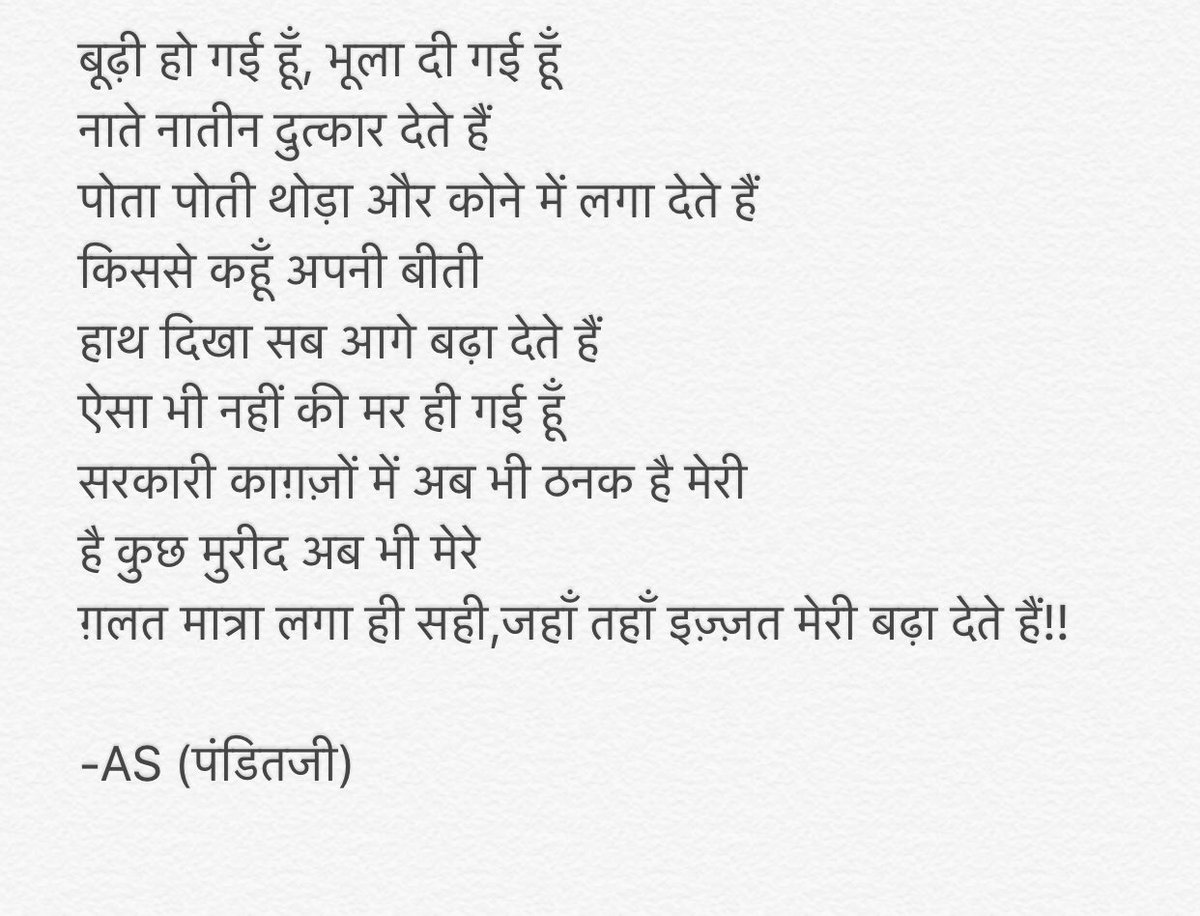 बूढ़ी हो गई हूँ, भूला दी गई हूँ
नाते नातीन दुत्कार देते हैं
पोता पोती थोड़ा और कोने में लगा देते हैं
किससे कहूँ अपनी बीती
हाथ दिखा सब आगे बढ़ा देते हैं
ऐसा भी नहीं की मर ही गई हूँ
सरकारी काग़ज़ों में अब भी ठनक है मेरी
है कुछ मुरीद अब भी मेरे
ग़लत मात्रा लगा ही सही,जहाँ तहाँ इज़्ज़त मेरी बढ़ा देते हैं!!
-AS (पंडितजी)